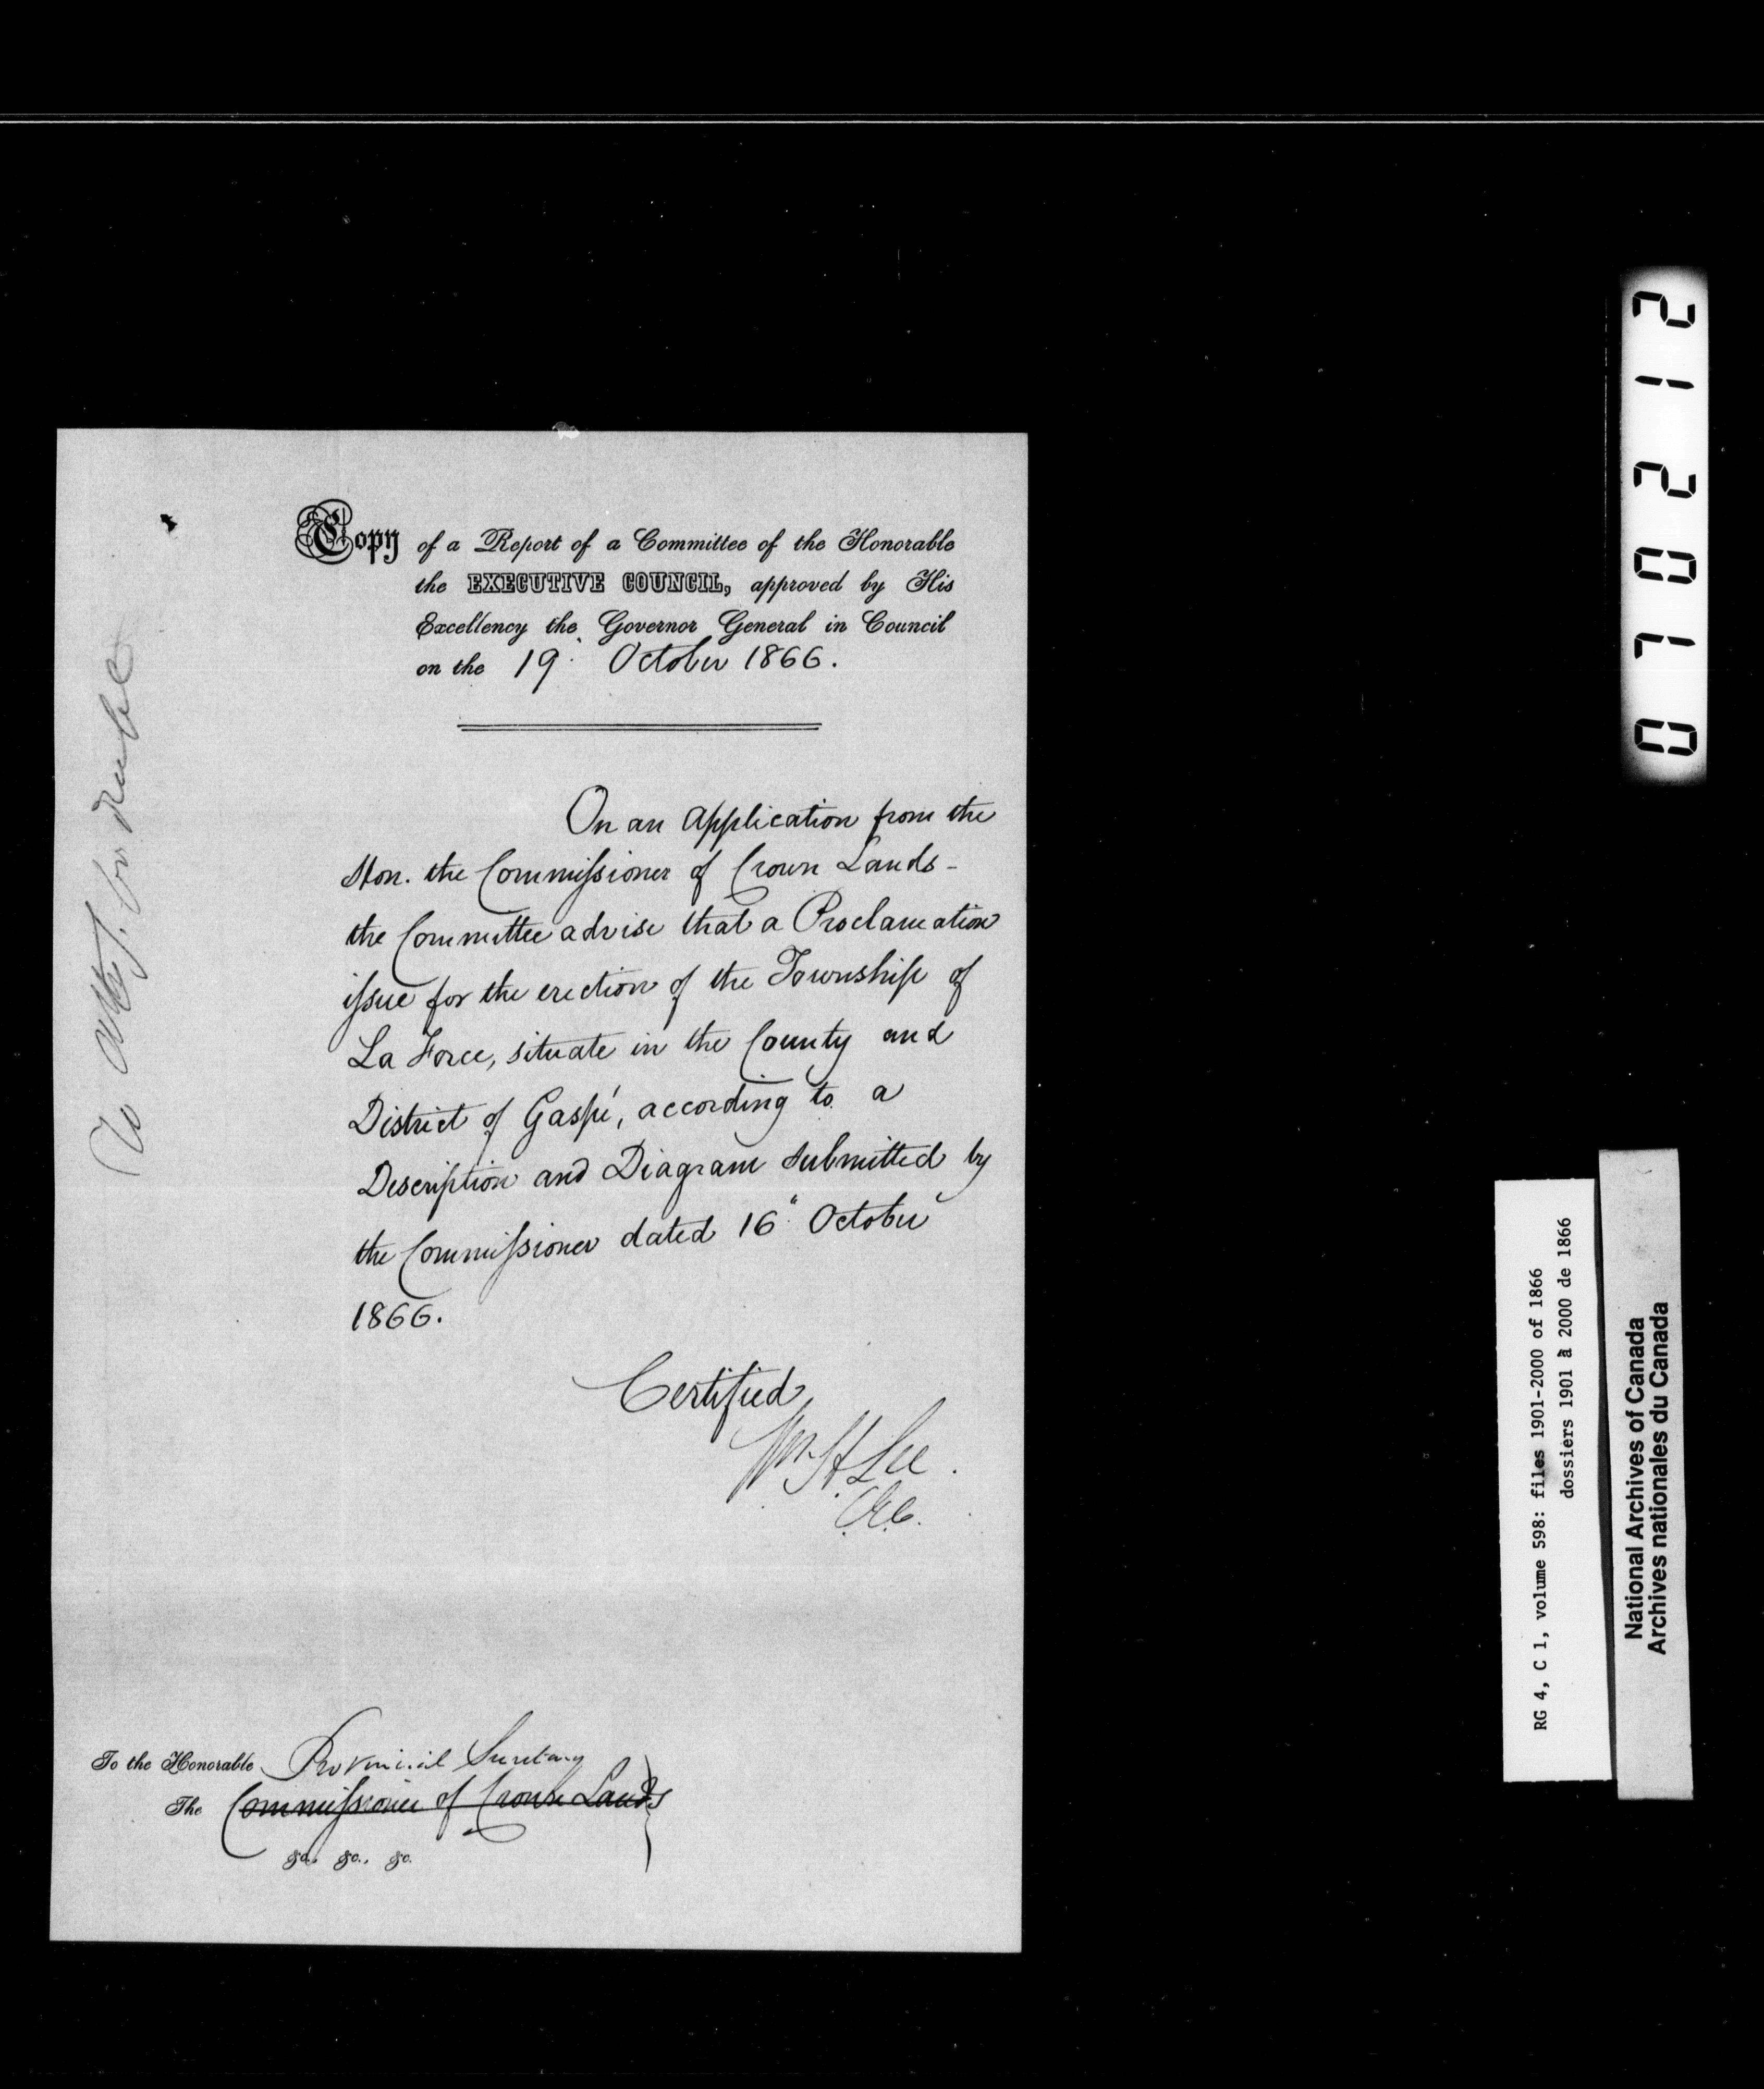 Copy of a Report of a Committee of the Honorable
the EXECUTIVE COUNCIL, approved by His
Excellency the Governor General in Council
on the 19" October 1866.
On an Application from the
Hon. the Commissioner of Crown Lands -
the Committee advise that a Proclamation
issue for the erection of the Township of
La Force, situate in the County and
District of Gaspé, according to a
Description and Diagram submitted by
the Commissioner dated 16" October
1866.
Certified
Wm H Lee.
C.E.C.
To the Honorable Provincial Secretary
The Commissioner of Crown Lands
&c., &c., &c.
To for
012021 2
RG 4, C 1, volume 598: files 1901-2000 of 1866
dossiers 1901 à 2000 de 1866
National Archives of Canada
Archives nationales du Canada